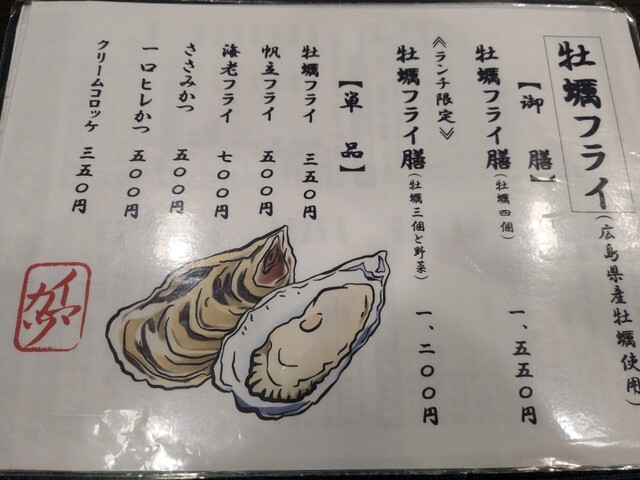 牡蠣フライ(広島県産牡蠣使用)
【御膳】
牡蠣フライ膳(牡蠣四個) 一、五五〇円
≪ランチ限定≫
牡蠣フライ膳(牡蠣三個と野菜) 一、二〇〇円
【単品】
牡蠣フライ 三五〇円
帆立フライ 五〇〇円
海老フライ 七〇〇円
ささみかつ 五〇〇円
一口ヒレかつ 五〇〇円
クリームコロッケ 三五〇円